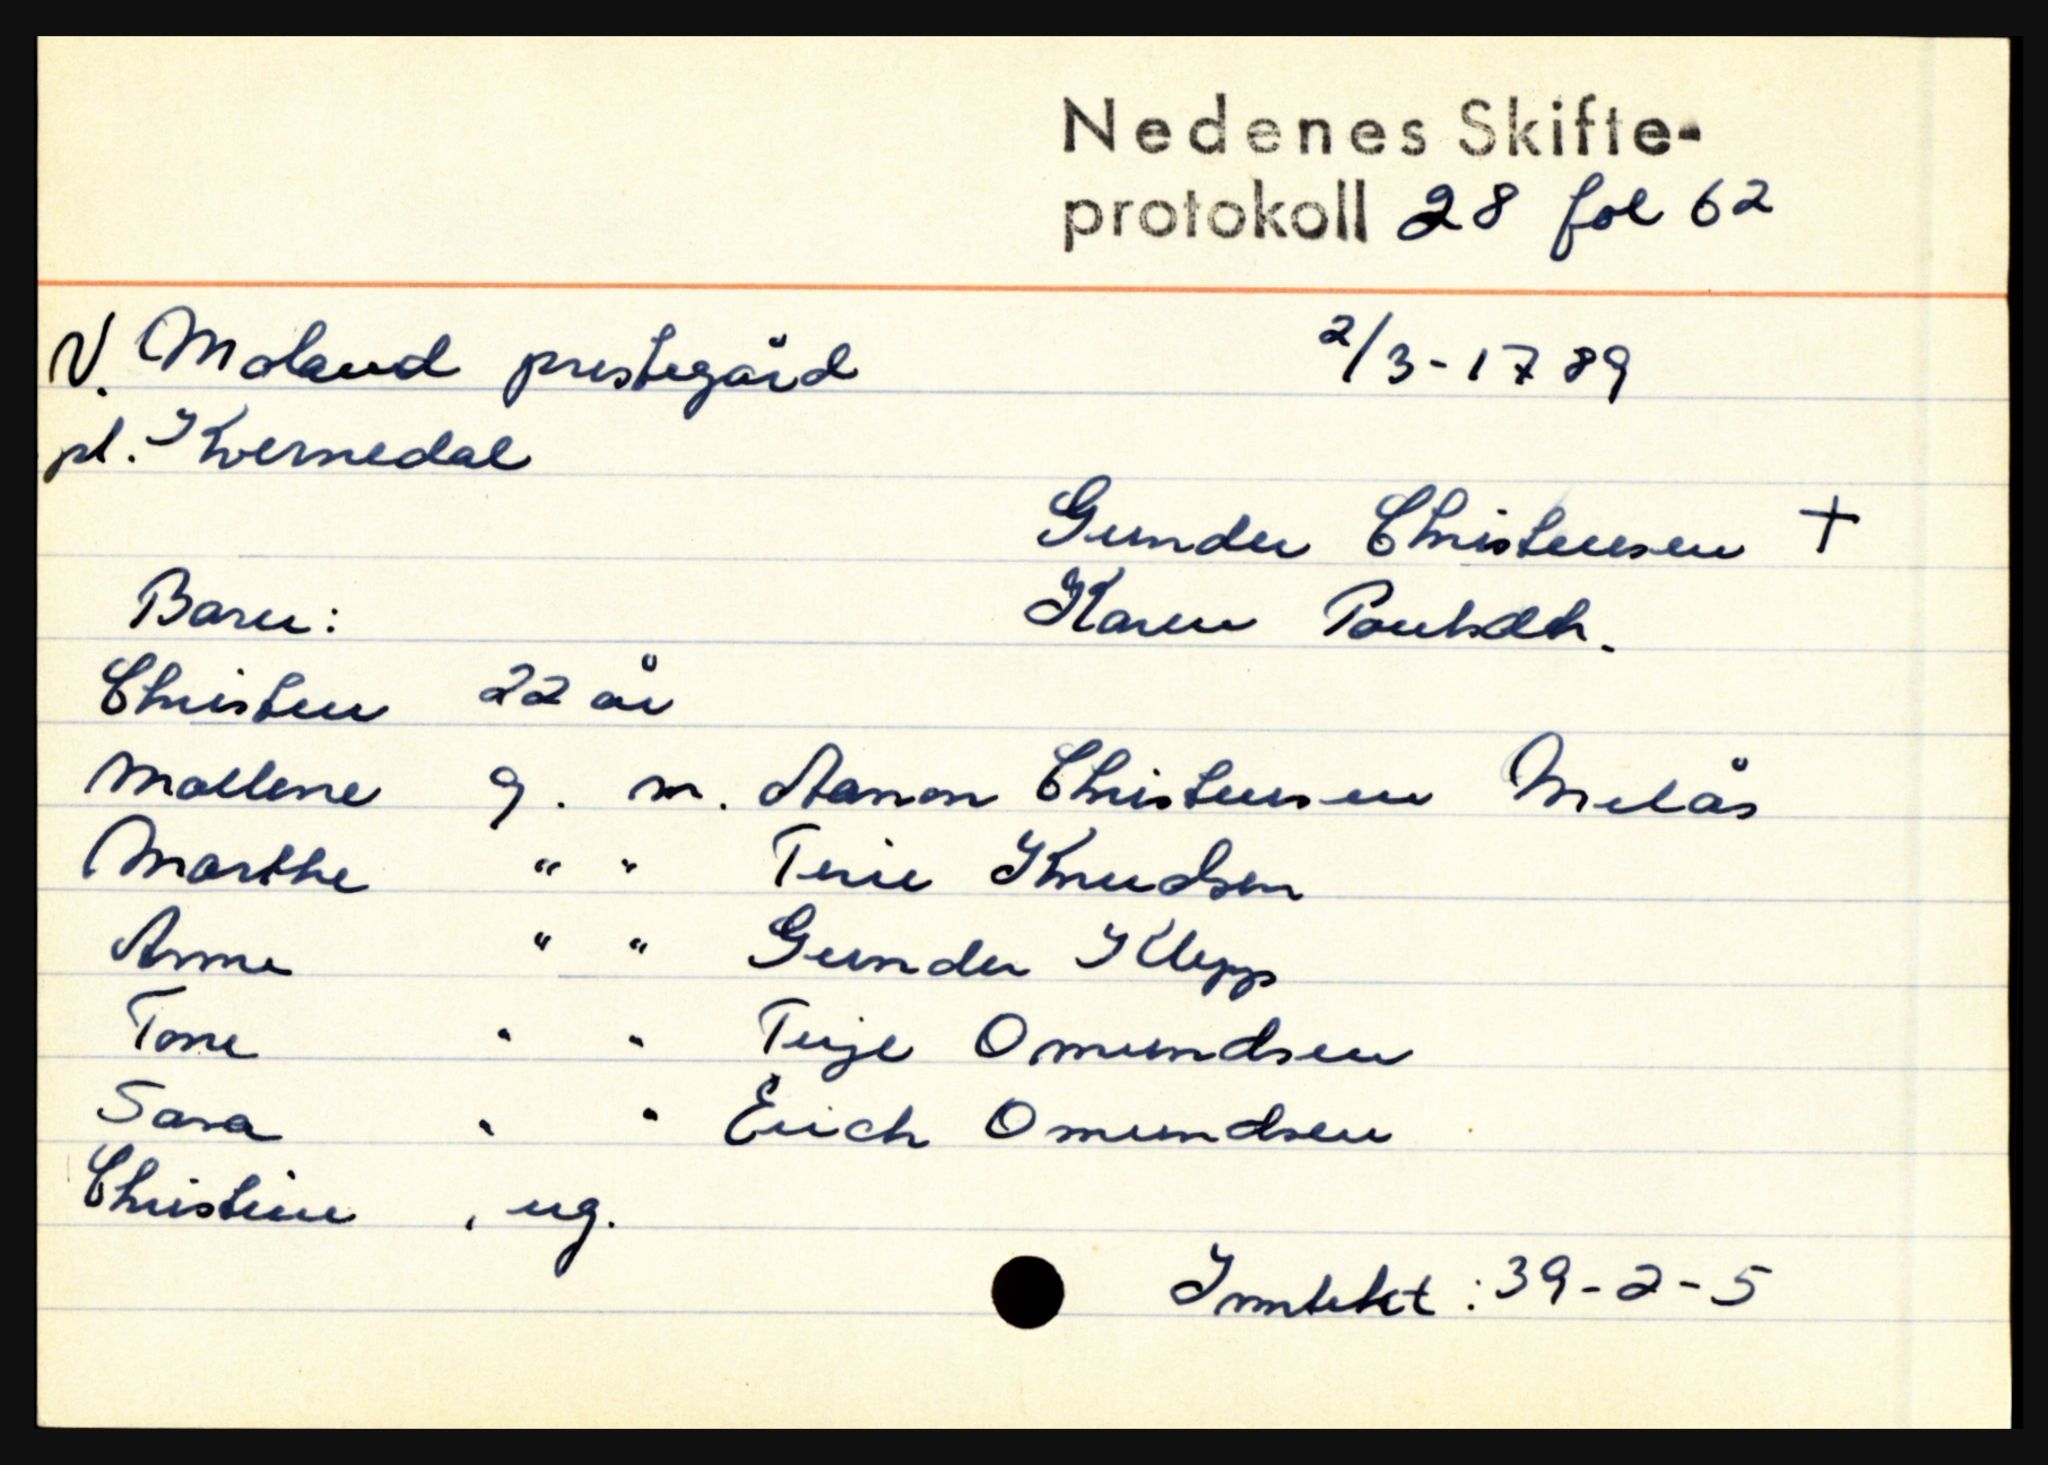 Nedenes Skifte-
protokoll 28 fol 62
V. Moland prestegård 2/3-1789
pl. Kvernedal
Gunder Christensen +
Barn: Karen Poulsdtr.
Christen 22 år
Mallene g. m. Aanon Christensen Melås
Marthe " " Terie Knudsen
Anne " " Gunder Klepp
Tone " " Terje Omundsen
Sara " " Erich Omundsen
Christine, ug.
Inntekt: 39-2-5